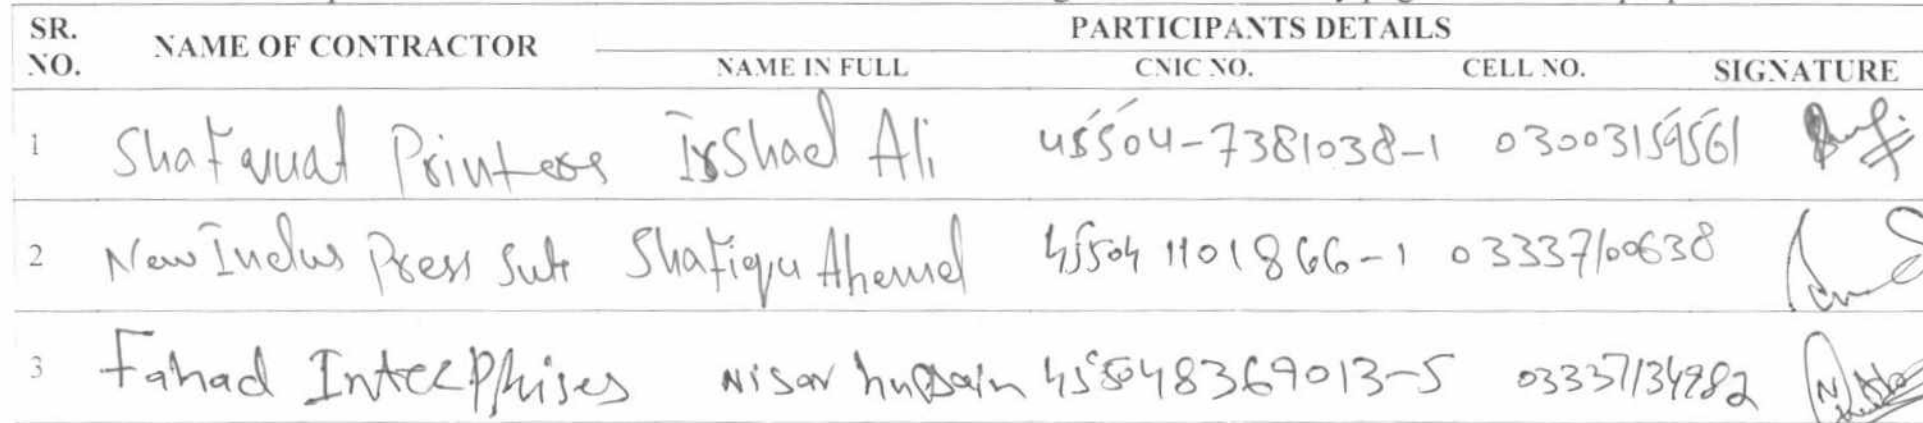 SR. NO. NAME OF CONTRACTOR PARTICIPANTS DETAILS
NAME IN FULL CNIC NO. CELL NO. SIGNATURE
1 Shafquat Printers Irshad Ali 45504-7381038-1 03003159561
2 New Indus Press Suk Shafiqu Ahemed 45504 1101866-1 03337100638
3 Fahad InterPhises Nisar hussain 455048369013-5 03337134982